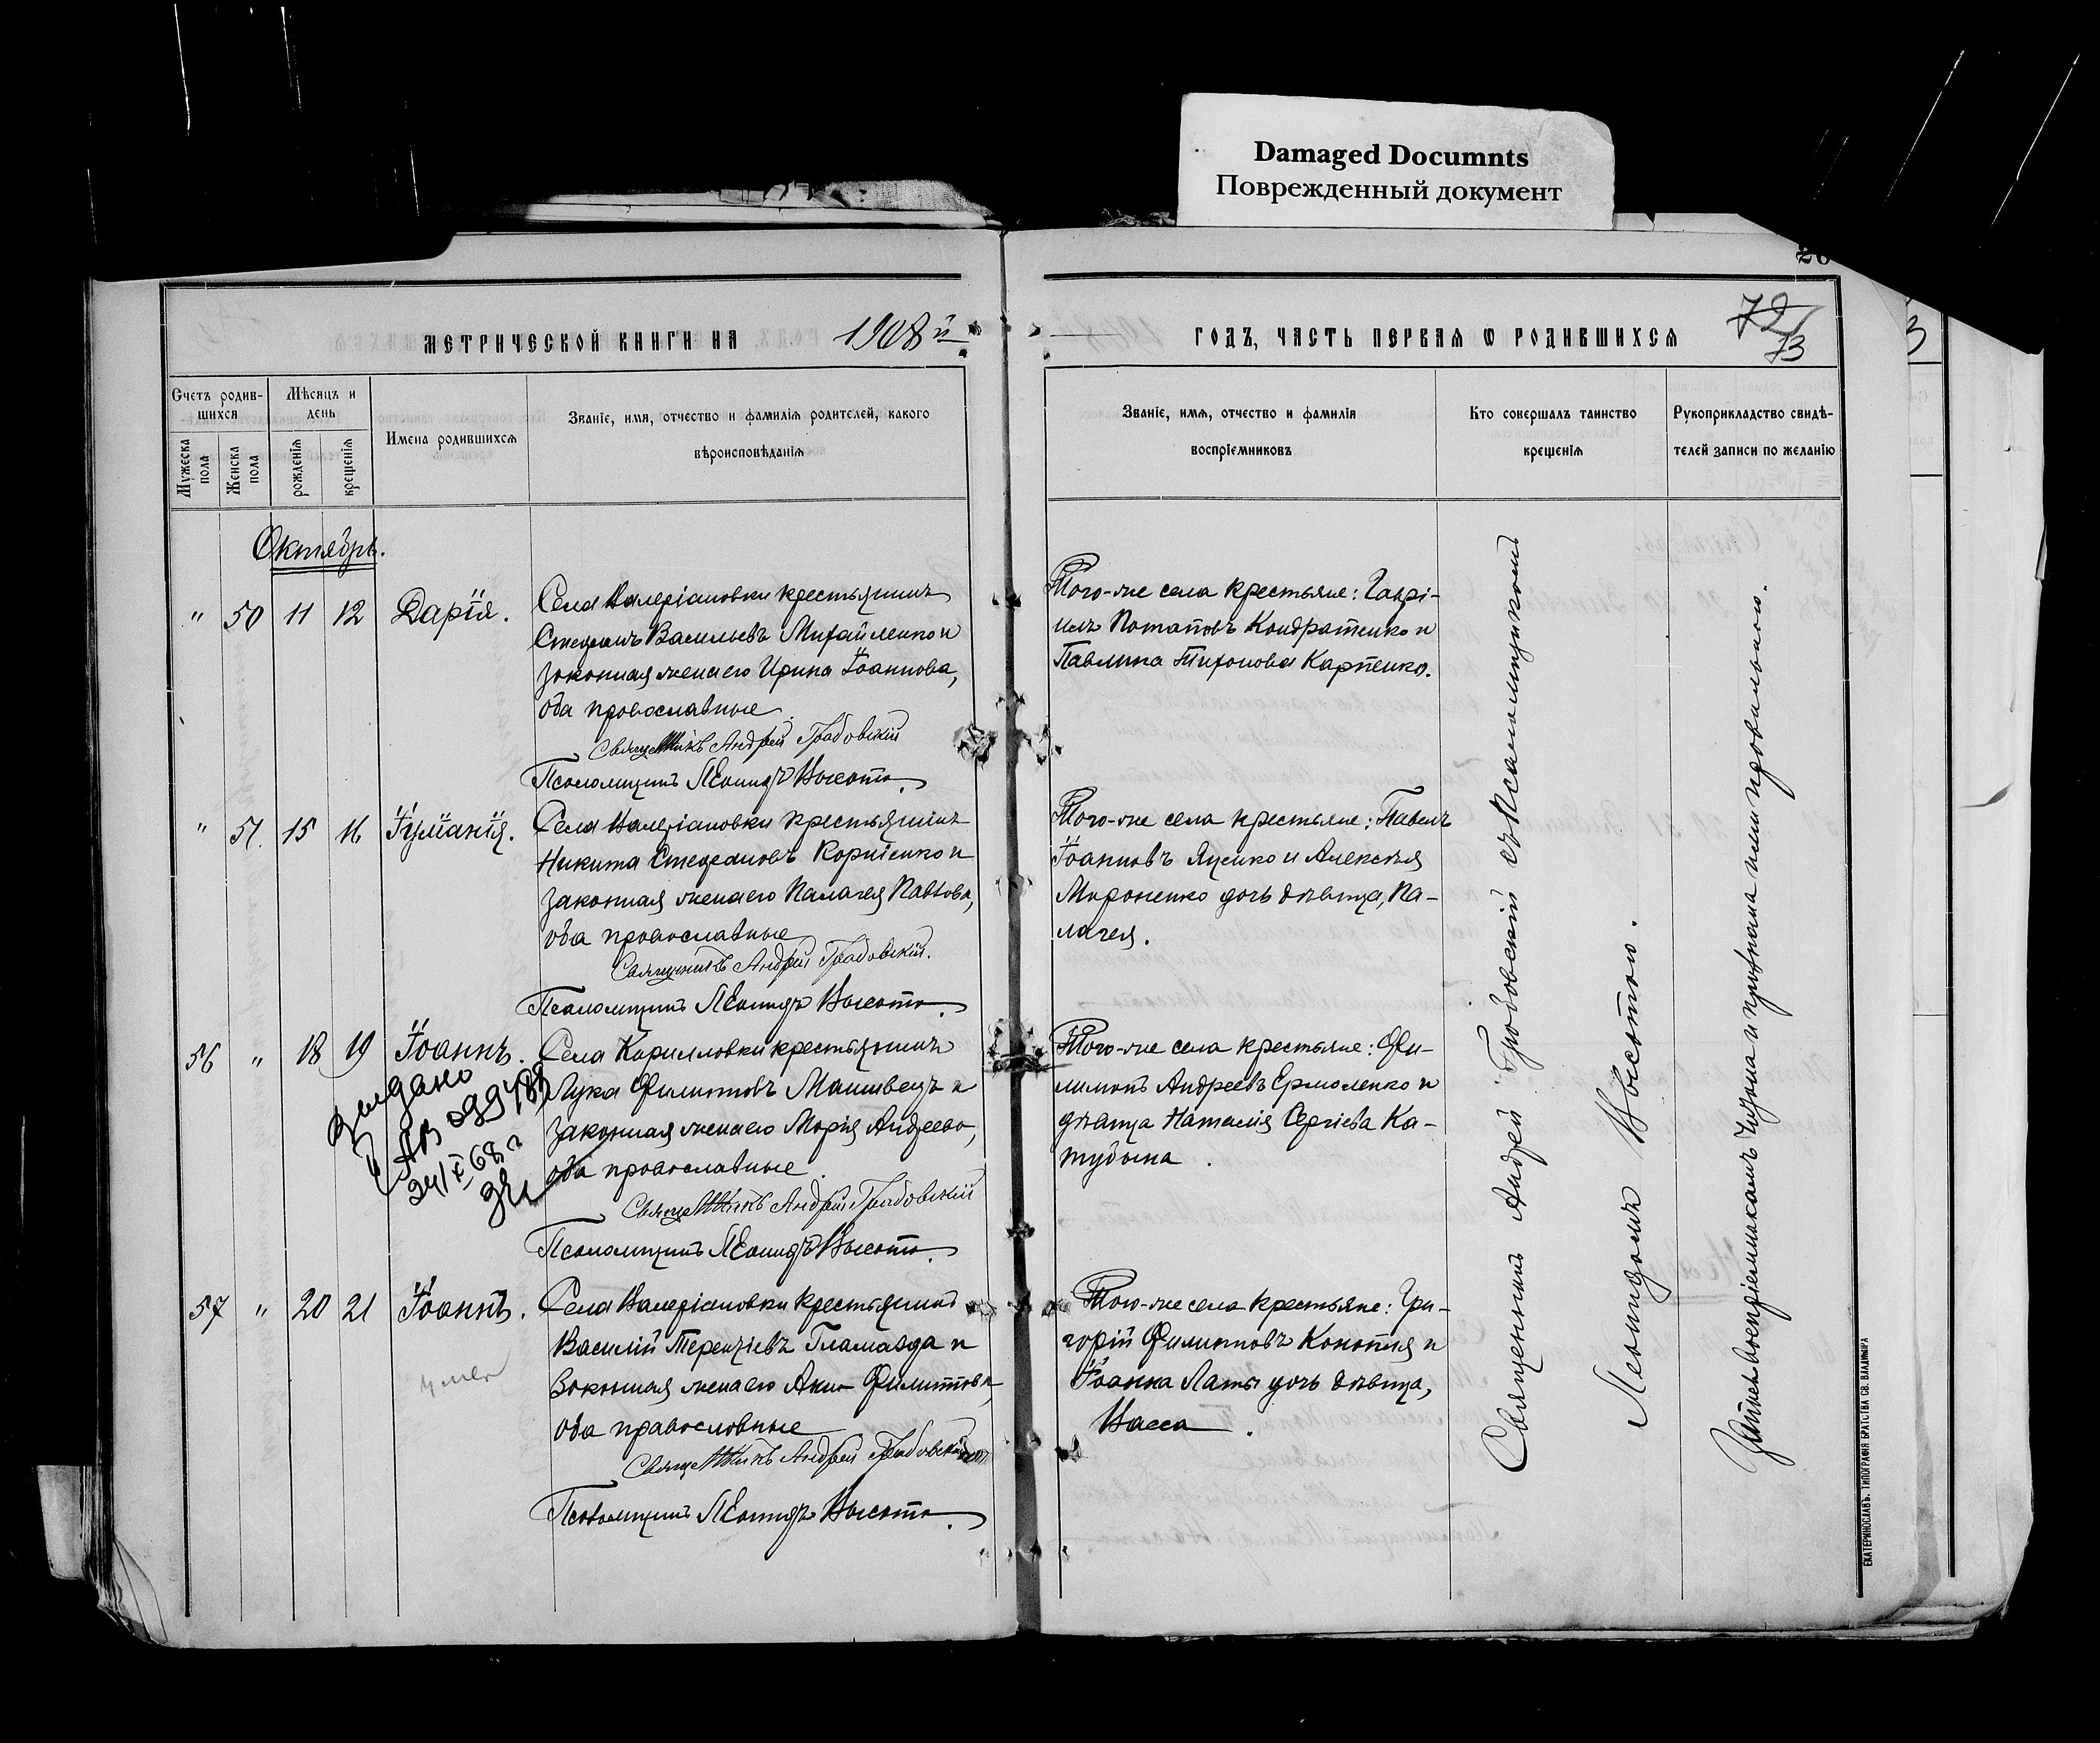 Damaged Documnts
Поврежденный документ
МЕТРИЧЕСКОЙ КНИГИ НА 1908й
ГОДЪ, ЧАСТЬ ПЕРВАЯ Ѡ РОДИВШИХСЯ
72/73
Счетъ родив-
шихся
Мужеска
пола
Женска
пола
Мѣсяцъ и
день
рожденія
крещенія
Имена родившихся
Званіе, имя, отчество и фамилія родителей, какого
вѣроисповѣданія
Званіе, имя, отчество и фамилія
воспріемниковъ
Кто совершалъ таинство
крещенія
Рукоприкладство свидѣ-
телей записи по желанію
Октябрь.
" 50 11 12 Дарія.
Села Валеріановки крестьянинъ
Стефанъ Васильевъ Михайленко и
законная жена его Ирина Іоаннова,
оба православные.
Священникъ Андрей Грабовскій
Псаломщикъ Леонидъ Высота.
Того-же села крестьяне: Гаврі-
илъ Потаповъ Кондратенко и
Павлина Тихонова Карпенко.
" 51. 15 16 Іуліанія.
Села Валеріановки крестьянинъ
Никита Стефановъ Корніенко и
законная жена его Палагея Павлова,
оба православные
Священникъ Андрей Грабовскій.
Псаломщикъ Леонидъ Высота.
Того-же села крестьяне: Павелъ
Іоанновъ Яценко и Алексѣя
Мироненко дочь дѣвица, Па-
лагея.
56 " 18 19 Іоаннъ.
Выдано
24/X 68 г
Села Кирилловки крестьянинъ
Лука Филипповъ Маншвецъ и
законная жена его Марія Андреева,
оба православные.
Священникъ Андрей Грабовскій
Псаломщикъ Леонидъ Высота.
Того-же села крестьяне: Фи-
лимонъ Андреевъ Ермоленко и
дѣвица Наталія Сергіева Ка-
тубына.
57 " 20 21 Іоаннъ.
умер
Села Валеріановки крестьянинъ
Василій Терентіевъ Гламазда и
законная жена его Анна Филиппова,
оба православные
Священникъ Андрей Грабовскій
Псаломщикъ Леонидъ Высота.
Того-же села крестьяне: Гри-
горій Филипповъ Конопля и
Іоанна Латы дочь дѣвица,
Васса.
Священникъ Андрей Грабовскій съ Псаломщикомъ
Леонидомъ Высотою.
воспріемникамъ читана и признана ими правильною.
ЕКАТЕРИНОСЛАВЪ. ТИПОГРАФІЯ БРАТСТВА СВ. ВЛАДИМІРА